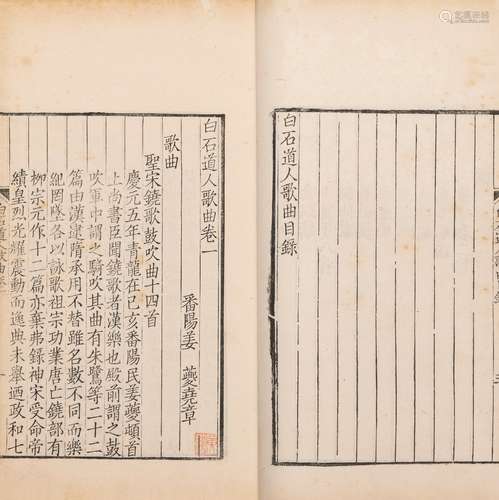 白石道人歌曲目録
白石道人歌曲卷一
番陽姜 夔堯章
歌曲
聖宋鐃歌鼓吹曲十四首
慶元五年青龍在己亥番陽民姜夔頓首
上尚書臣聞鐃歌者漢樂也殿前謂之鼓
吹軍中謂之騎吹其曲有朱鷺等二十二
篇由漢逮隋承用不替雖名數不同而樂
紀罔墜各以詠歌祖宗功業唐亡鐃部有
柳宗元作十二篇亦棄弗錄神宋受命帝
績皇烈光耀震動而逸典未舉迺政和七